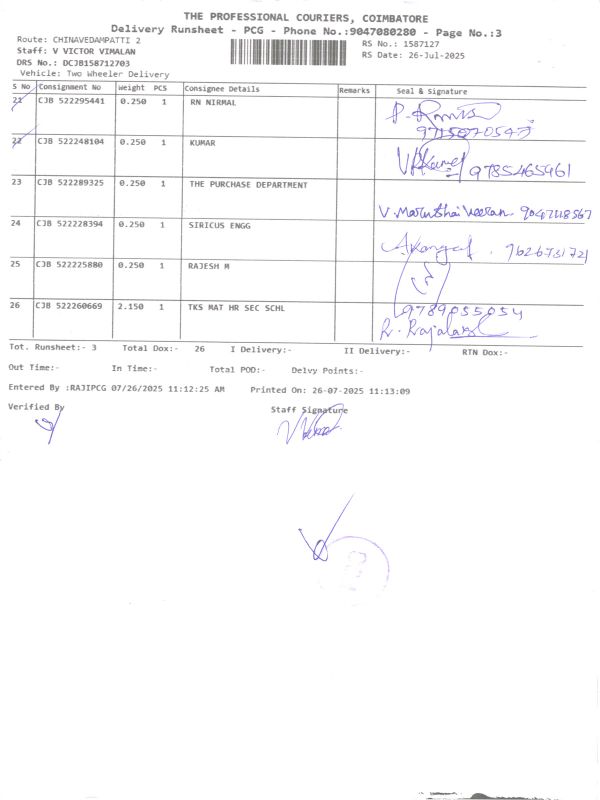 THE PROFESSIONAL COURIERS, COIMBATORE
Delivery Runsheet - PCG - Phone No.:9047080280 - Page No.:3
Route: CHINAVEDAMPATTI 2
RS No.: 1587127
Staff: V VICTOR VIMALAN
RS Date: 26-Jul-2025
DRS No.: DCJB158712703
Vehicle: Two Wheeler Delivery
S No Consignment No Weight PCS Consignee Details Remarks Seal & Signature
21 CJB 522295441 0.250 1 RN NIRMAL
22 CJB 522248104 0.250 1 KUMAR 9785465961
23 CJB 522289325 0.250 1 THE PURCHASE DEPARTMENT
V. Maruthai Veeran.
24 CJB 522228394 0.250 1 SIRICUS ENGG
25 CJB 522225880 0.250 1 RAJESH M
26 CJB 522260669 2.150 1 TKS MAT HR SEC SCHL 9789055054
Tot. Runsheet:- 3 Total Dox:- 26 I Delivery:- II Delivery:- RTN Dox:-
Out Time:- In Time:- Total POD:- Delvy Points:-
Entered By :RAJIPCG 07/26/2025 11:12:25 AM Printed On: 26-07-2025 11:13:09
Verified By Staff Signature